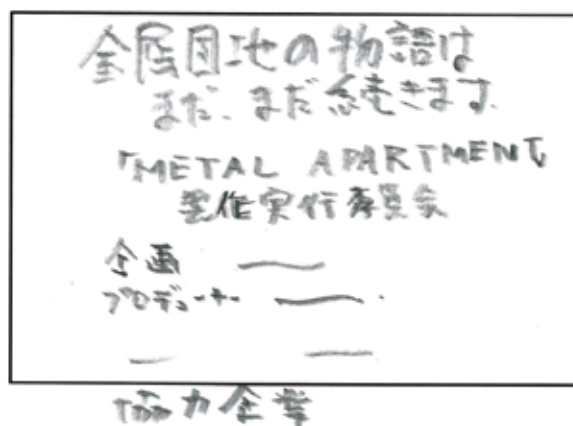 金属団地の物語は
まだ、まだ続きます。
「METAL APARTMENT」
製作実行委員会
企画
プロデューサー
協力企業